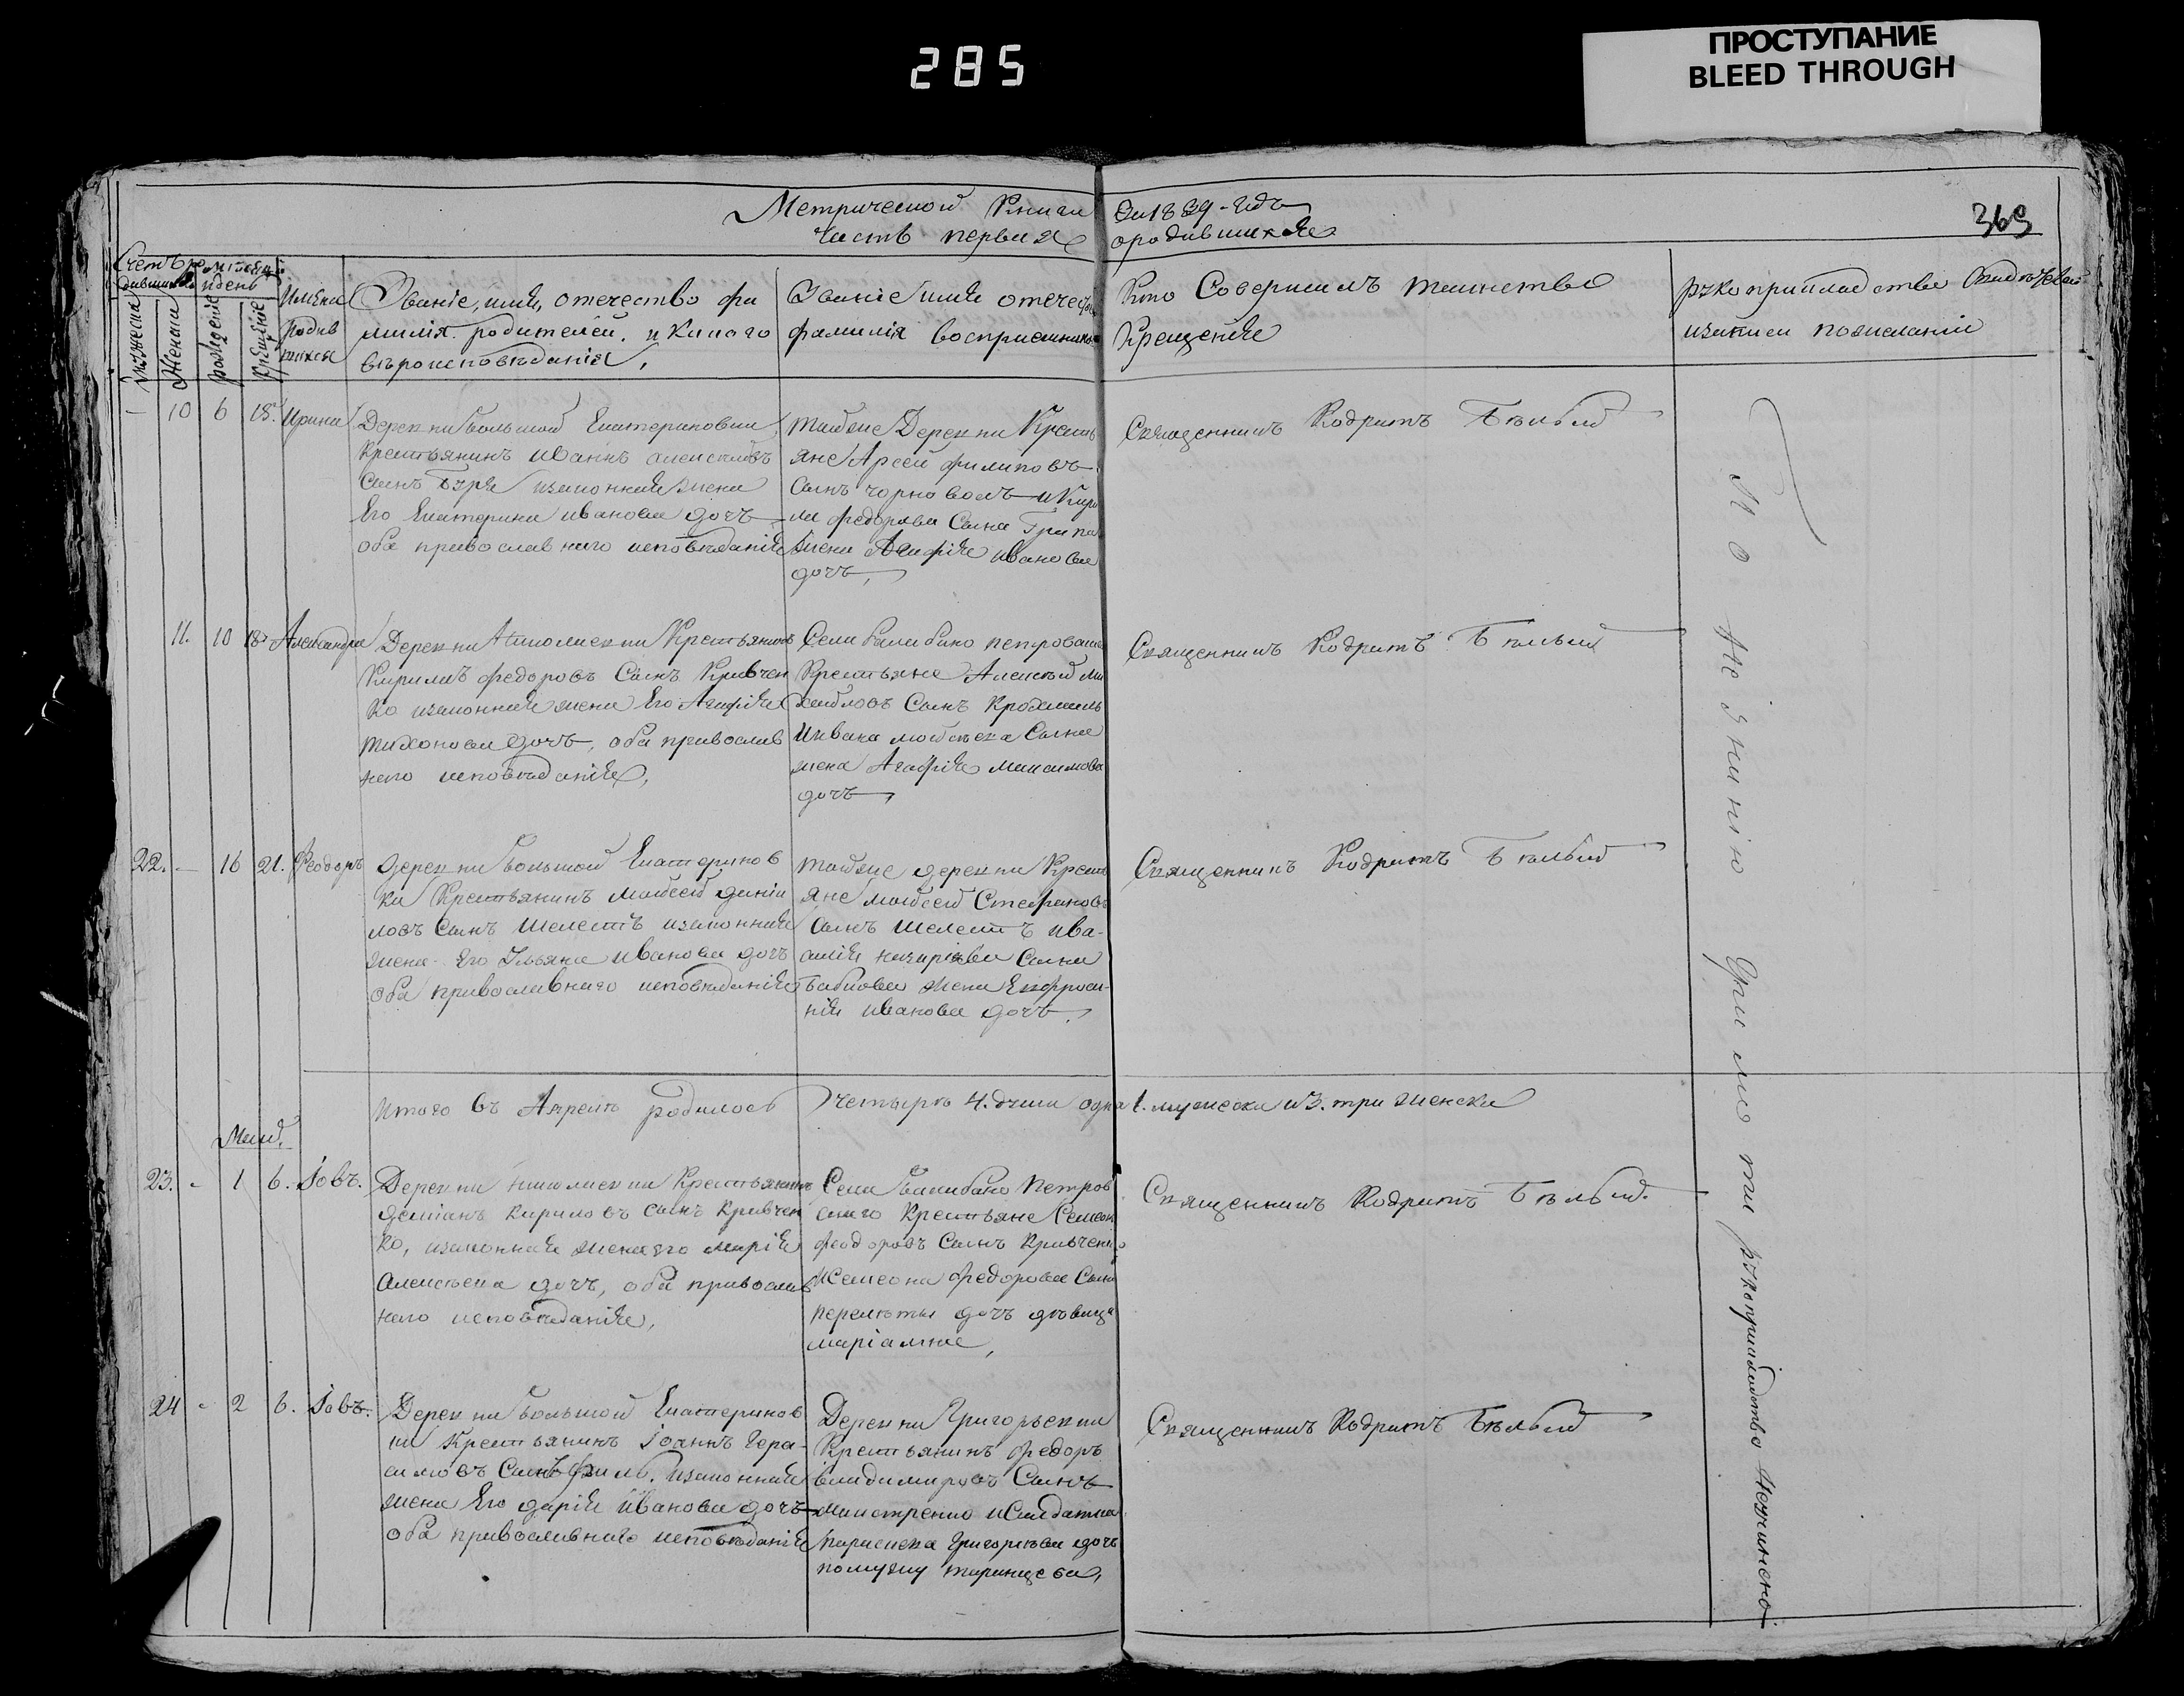 285
ПРОСТУПАНИЕ
BLEED THROUGH
Метрической Книги
На 1839-Годъ
369
часть первая
ородившихся
Счетъ ро
дившихся
мѣсяц
идень
Мужеска
Женска
рожденіе
крещеніе
Имена
родив
шихся
Званіе, имя, отечество фа
милія родителей, и какого
вѣроисповѣданія,
Званіе имя отечество
фамилія восприемников
Кто Совершилъ таинство
Крещенія
рукоприкладство Свидѣтелей
изаписи пожеланіи
10 6 18. Ирина
Деревни большой Екатериновки
Крестьянинъ иванъ алексѣевъ
сынъ изаконная жена
Его Екатерина иванова дочъ
оба православнаго исповѣданія
тойже Деревни Кресть
яне Арсей филиповъ
сынъ чорноволъ и Кири
ла федорова Сына
жена Агафія иванова
дочъ,
Священникъ Кодратъ Бѣлый
11. 10 18 Александра
Деревни Николаевки Крестьянинъ
Кирилъ федоровъ Сынъ Кривчен
ко изаконная жена Его Агафія
тихонова дочъ, оба православ
наго исповѣданія,
Села балабано петровскаго
Крестьяне Алексѣй ми
хайловъ Сынъ Крохмаль
Иивана мойсѣева Сына
жена Агафія максимова
дочъ
Священникъ Кодратъ Бѣлый
22. - 16 21. Феодоръ
Деревни большой Екатеринов
ки Крестьянинъ мойсей дании
ловъ Сынъ Шелестъ изаконная
жена Его Ульяна Иванова дочъ
оба православнаго исповѣданія
тойже деревни Кресть
яне мойсей Стефановъ
сынъ Шелестъ ива-
назарова Сына
Бабкова жена Евфроси-
нія иванова дочъ,
Священникъ Кодратъ Бѣлый
Итого въ Апрелѣ родилось четыре 4. души одна 1. мужеска и 3. три женска
Май.
23. - 1 6. Іовъ.
Деревни николаевки Крестьянинъ
деміанъ кириловъ сынъ Кривчен
ко, изаконная жена его марія
Алексѣева дочъ, оба православ
наго исповѣданія,
Села балабано Петров
скаго Крестьяне Семеонъ
феодоровъ Сынъ Кривченко
иСемеона федорова Сына
дочъ дѣвица
маріамна,
Священникъ Кодратъ Бѣлый.
24 - 2 6. Іовъ.
Деревни большой Екатеринов
ки Крестьянинъ Іоаннъ Гера-
симовъ Сынъ изаконная
жена Его дарія иванова дочъ
оба православнаго исповѣданія
Деревни Григорьевки
Крестьянинъ федоръ
владимировъ Сынъ
иСалдатка
параскева Григорьева дочъ
помужу
Священникъ Кодратъ Бѣлый
По незнанію Грамоты рукоприкладство Неучинено